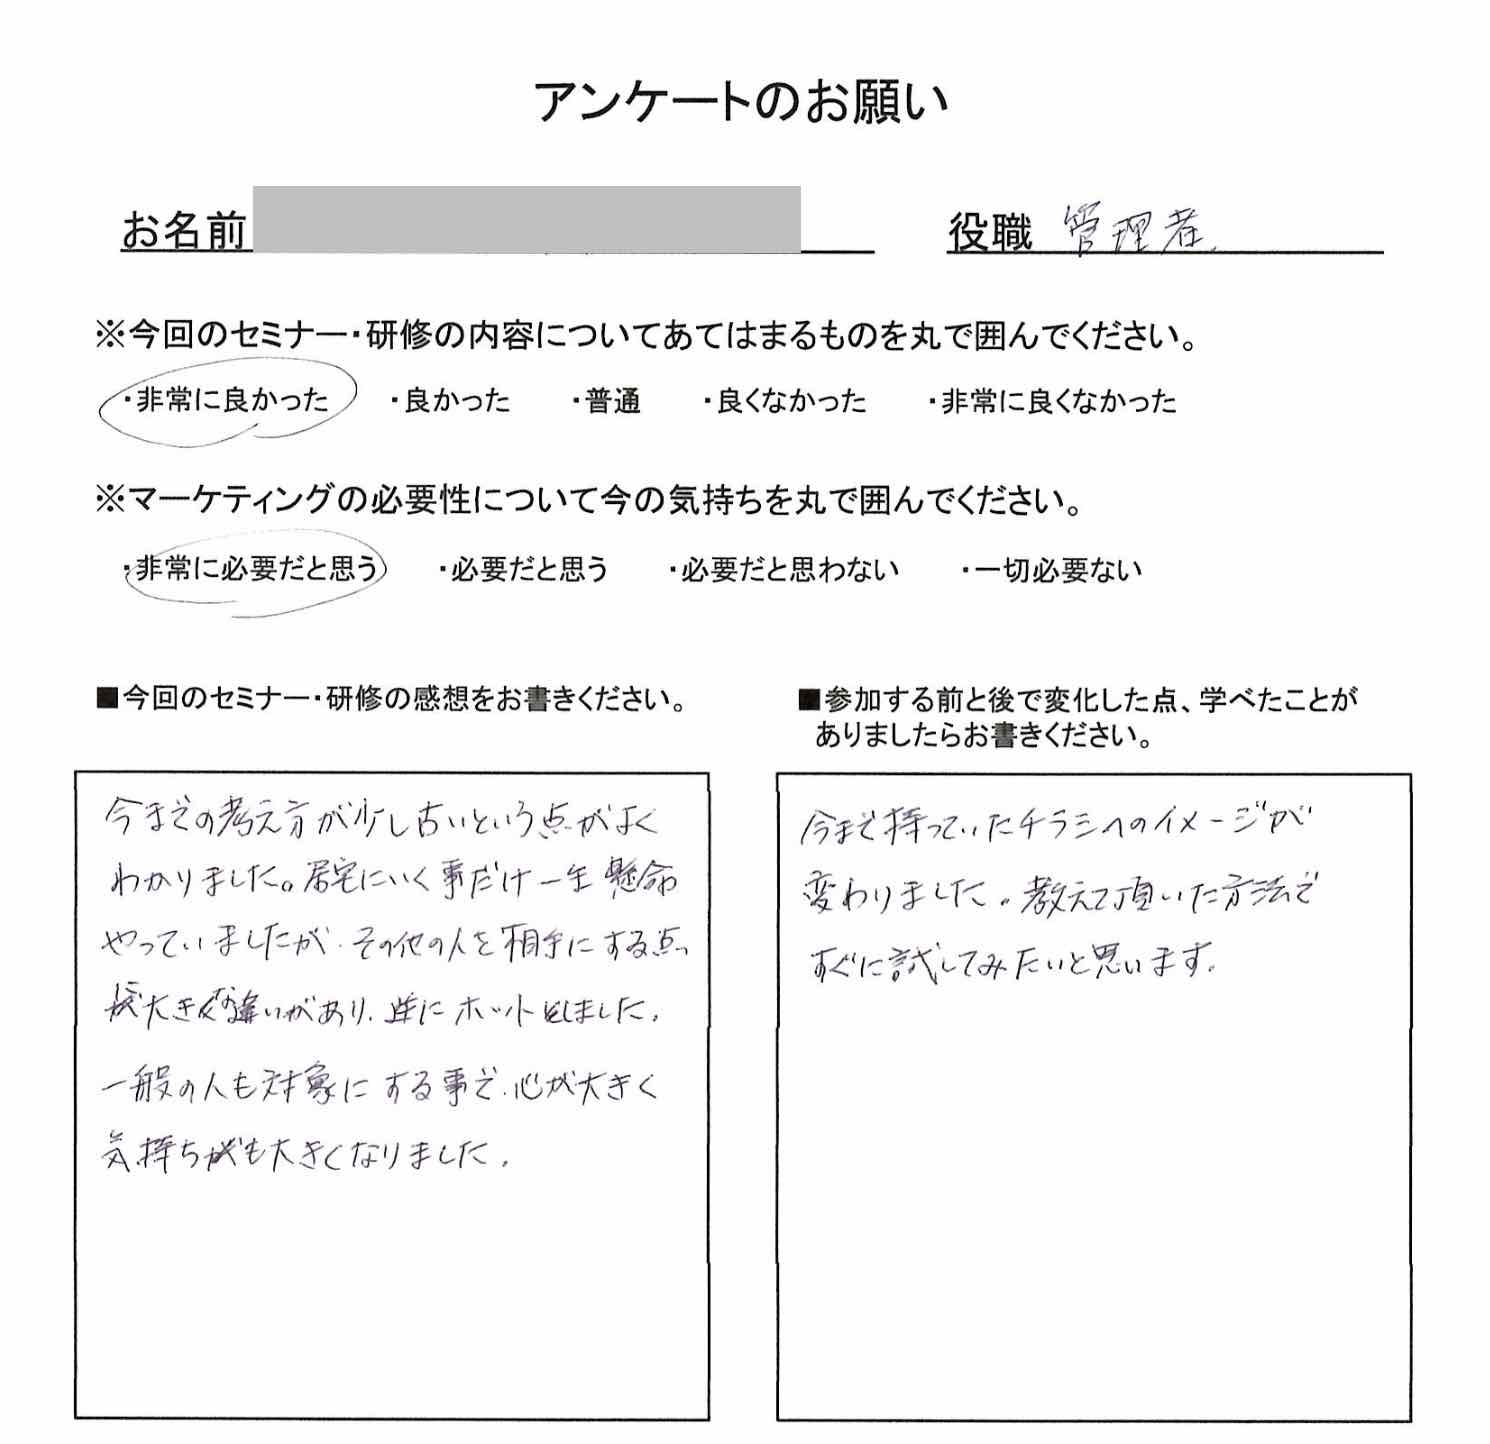 アンケートのお願い
お名前
役職 管理者.
※今回のセミナー・研修の内容についてあてはまるものを丸で囲んでください。
・非常に良かった ・良かった ・普通 ・良くなかった ・非常に良くなかった
※マーケティングの必要性について今の気持ちを丸で囲んでください。
・非常に必要だと思う ・必要だと思う ・必要だと思わない ・一切必要ない
■今回のセミナー・研修の感想をお書きください。
今までの考え方が少し古いという点がよく
わかりました。居宅にいく事だけ一生懸命
やっていましたが、その他の人を相手にする点、
大きな違いがあり、逆にホットしました。
一般の人も対象にする事で、心が大きく
気持ちも大きくなりました。
■参加する前と後で変化した点、学べたことが
ありましたらお書きください。
今まで持っていたチラシへのイメージが
変わりました。教えて頂いた方法で
すぐに試してみたいと思います。